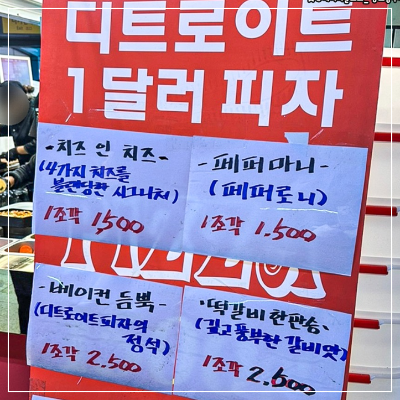 디트로이트
1달러 피자
-치즈 인 치즈-
(4가지 치즈를
블렌딩한 시그니처)
1조각 1,500
-페퍼마니-
(페퍼로니)
1조각 1,500
-베이컨 듬뿍-
(디트로이트피자의
정석)
1조각 2,500
·떡갈비 한판승·
(깊고 풍부한 갈비맛)
1조각 2,500